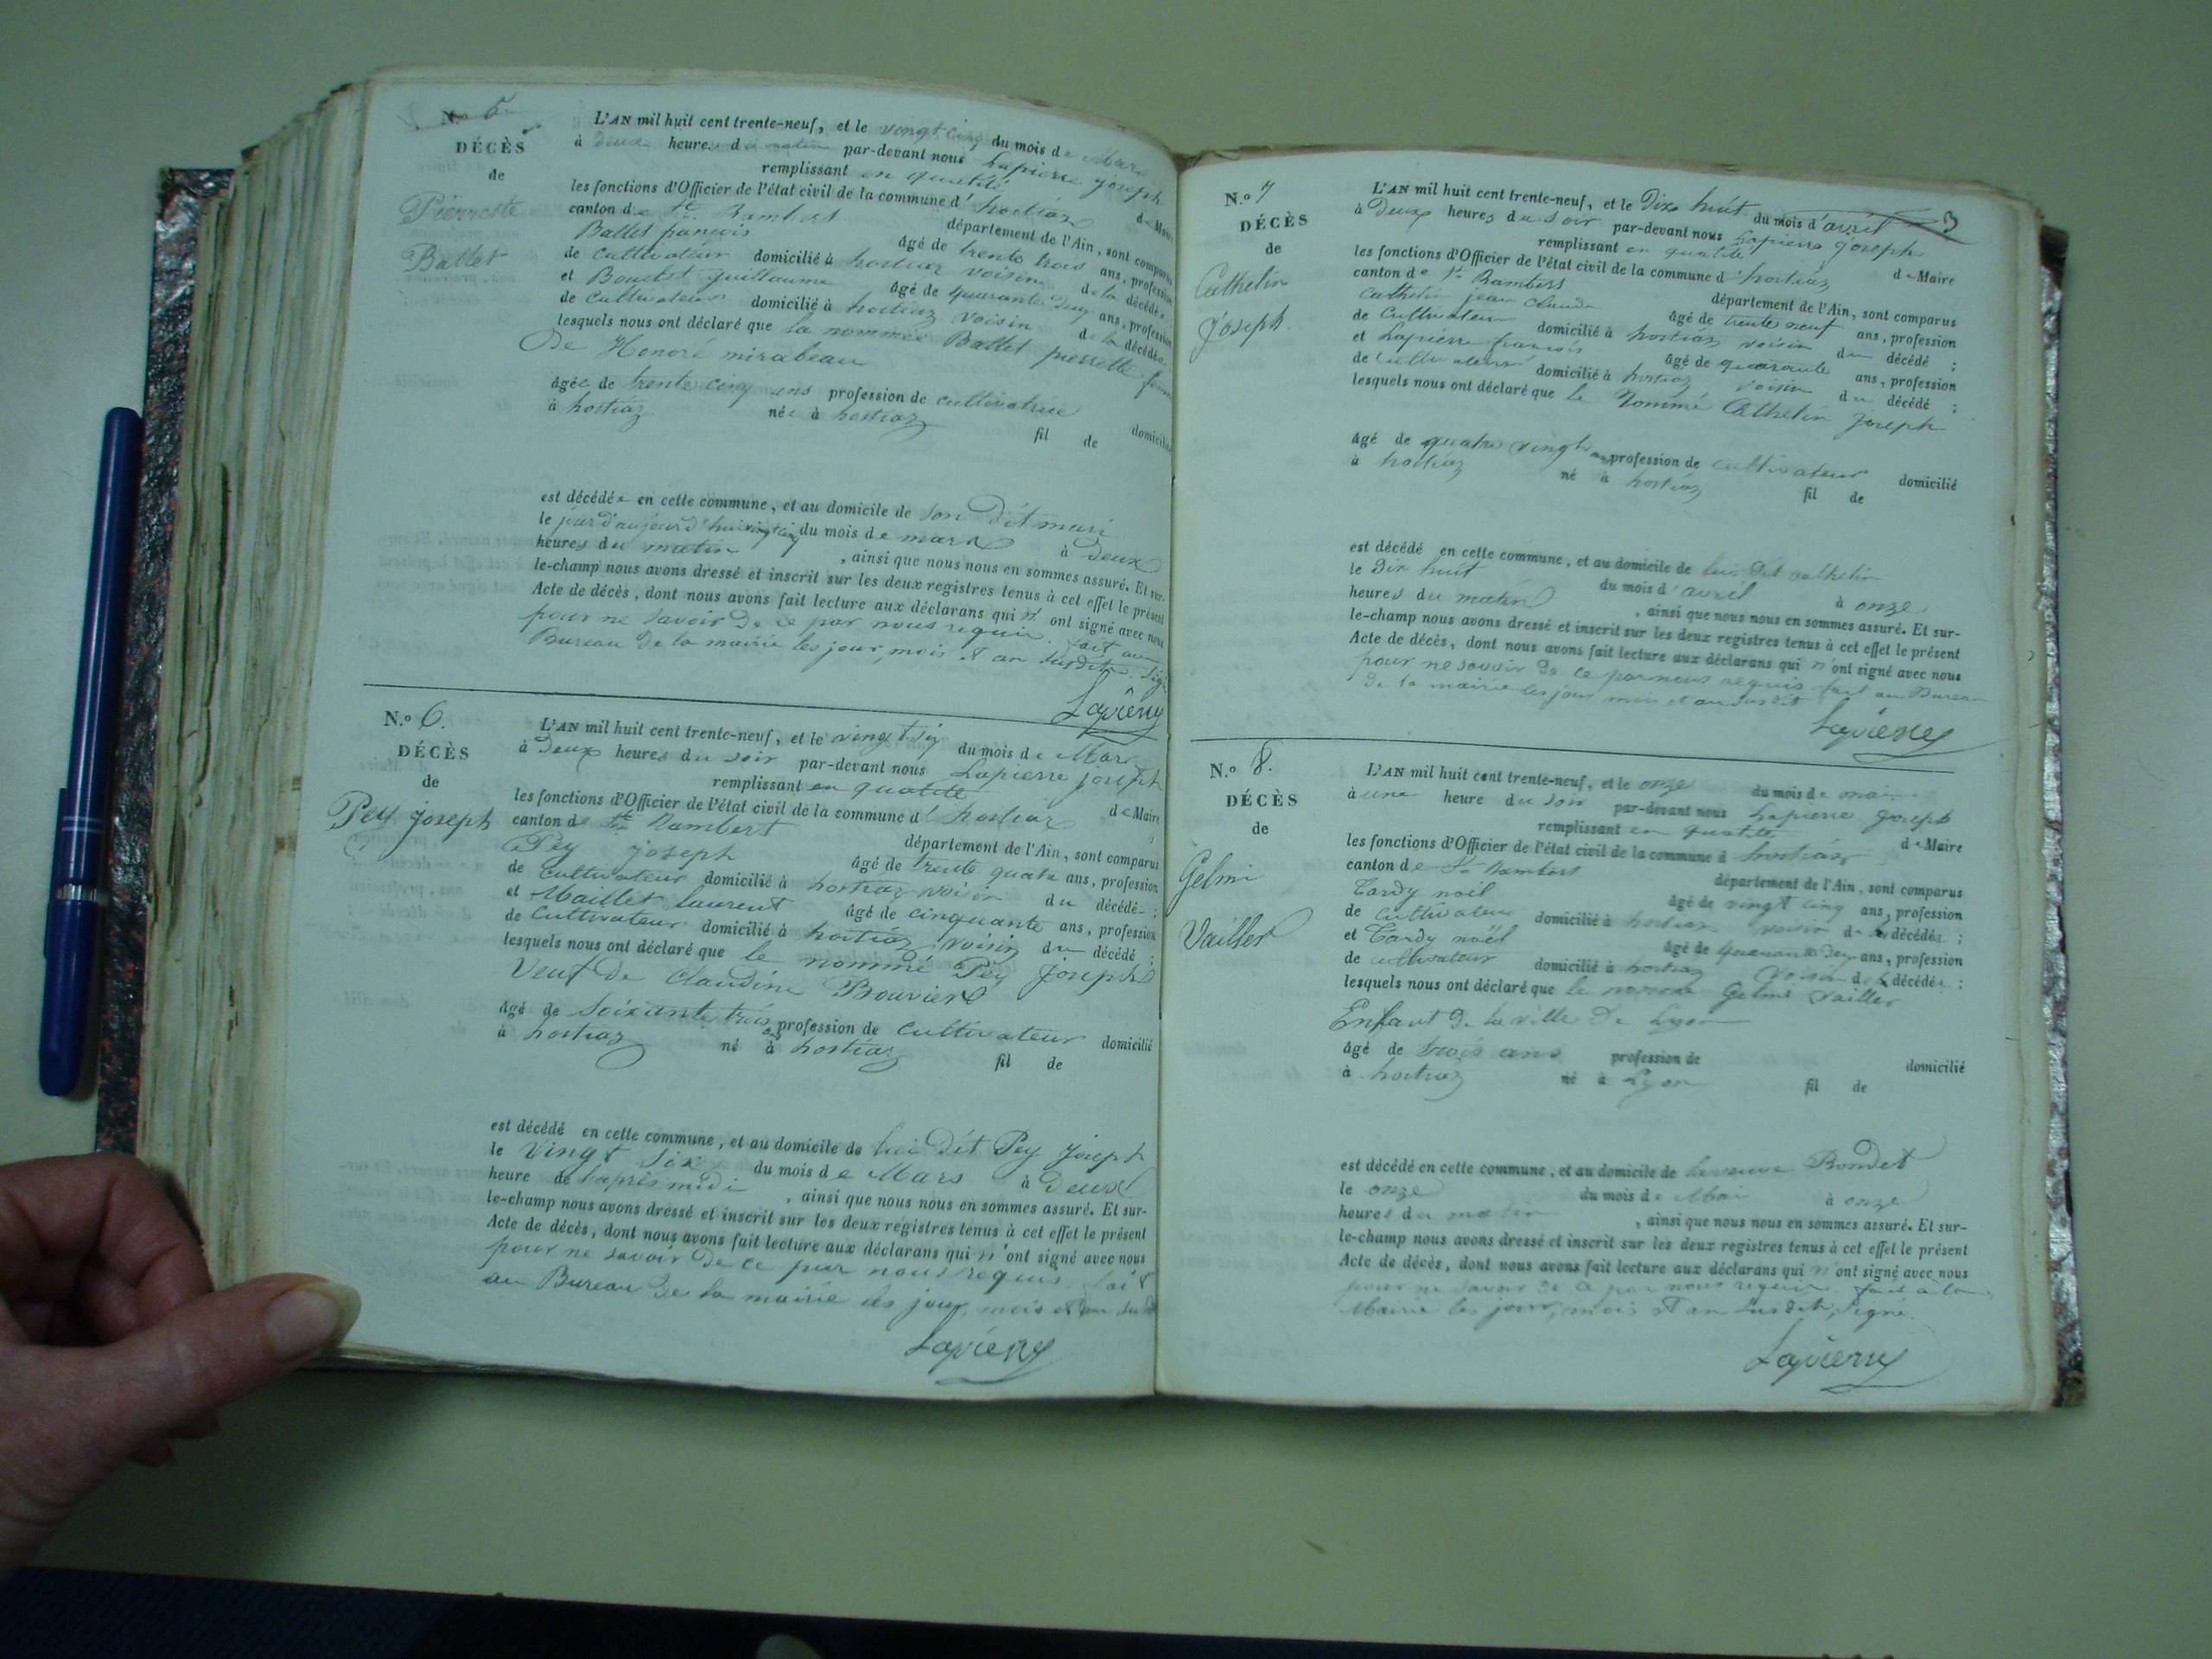 N.o 5
DÉCÈS
de
Pierrette
Ballet
L'AN mil huit cent trente-neuf, et le vingt cinq du mois de Mars
à deux heures du matin par-devant nous Lapierre joseph
remplissant en qualité de Maire
les fonctions d'Officier de l'état civil de la commune d' hostiaz
canton de St. Rambert département de l'Ain, sont comparus
Ballet françois âgé de trente trois ans, profession
de Cultivateur domicilié à hostiaz voisin de la décédée
et Boudet guillaume âgé de quarante deux ans, profession
de Cultivateur domicilié à hostiaz voisin de la décédée
lesquels nous ont déclaré que la nommée Ballet pierrette femme
De Honoré mirabeau
âgée de trente cinq ans profession de cultivatrice domicilié
à hostiaz née à hostiaz fil de
est décédée en cette commune, et au domicile de son Dit mari
le jour d'aujourd'hui vingt cinq du mois de mars à Deux
heures du matin, ainsi que nous nous en sommes assuré. Et sur-
le-champ nous avons dressé et inscrit sur les deux registres tenus à cet effet le présent
Acte de décès, dont nous avons fait lecture aux déclarans qui n' ont signé avec nous
pour ne savoir De ce par nous requis. fait au
Bureau De la mairie les jour, mois et an susdits. Signé
Lapierre
N.o 6.
DÉCÈS
de
Pey joseph
L'AN mil huit cent trente-neuf, et le vingt six du mois de Mars
à Deux heures du soir par-devant nous Lapierre joseph
remplissant en qualité de Maire
les fonctions d'Officier de l'état civil de la commune d' hostiaz
canton de St. Rambert département de l'Ain, sont comparus
Pey joseph âgé de trente quatre ans, profession
de cultivateur domicilié à hostiaz voisin du décédé ;
et Maillet Laurent âgé de cinquante ans, profession
de Cultivateur domicilié à hostiaz voisin du décédé ;
lesquels nous ont déclaré que le nommé Pey joseph
Veuf De Claudine Bouvier
âgé de soixante trois ans profession de cultivateur domicilié
à hostiaz né à hostiaz fil de
est décédé en cette commune, et au domicile de lui Dit Pey joseph
le Vingt Six du mois de Mars à Deux
heure de l'après midi, ainsi que nous nous en sommes assuré. Et sur-
le-champ nous avons dressé et inscrit sur les deux registres tenus à cet effet le présent
Acte de décès, dont nous avons fait lecture aux déclarans qui n' ont signé avec nous
pour ne savoir De ce par nous requis. fait
au Bureau De la mairie les jour, mois et an susdit
Lapierre
3
N.o 7
DÉCÈS
de
Cathelin
Joseph.
L'AN mil huit cent trente-neuf, et le Dix huit du mois d'avril
à Deux heures du soir par-devant nous Lapierre joseph
remplissant en qualité de Maire
les fonctions d'Officier de l'état civil de la commune d' hostiaz
canton de St. Rambert département de l'Ain, sont comparus
Cathelin jean claude âgé de trente neuf ans, profession
de Cultivateur domicilié à hostiaz voisin du décédé ;
et Lapierre françois âgé de quarante ans, profession
de cultivateur domicilié à hostiaz voisin du décédé ;
lesquels nous ont déclaré que le Nommé Cathelin joseph
âgé de quatre vingt ans profession de cultivateur domicilié
à hostiaz né à hostiaz fil de
est décédé en cette commune, et au domicile de lui Dit cathelin
le Dix huit du mois d'avril à onze
heures du matin, ainsi que nous nous en sommes assuré. Et sur-
le-champ nous avons dressé et inscrit sur les deux registres tenus à cet effet le présent
Acte de décès, dont nous avons fait lecture aux déclarans qui n'ont signé avec nous
pour ne savoir De ce par nous requis fait au Bureau
De la mairie les jour mois et an susdit
Lapierre
N.o 8.
DÉCÈS
de
Gelmi
Vailler
L'AN mil huit cent trente-neuf, et le onze du mois de mai
à une heure du soir par-devant nous Lapierre joseph
remplissant en qualité de Maire
les fonctions d'Officier de l'état civil de la commune d hostiaz
canton de St Rambert département de l'Ain, sont comparus
Tardy noël âgé de vingt cinq ans, profession
de cultivateur domicilié à hostiaz voisin de la décédée ;
et Tardy noël âgé de quarante deux ans, profession
de cultivateur domicilié à hostiaz Voisin de la décédée ;
lesquels nous ont déclaré que le nommé Gelmi Vailler
Enfant De la ville De Lyon
âgé de trois ans profession de domicilié
à hostiaz né à Lyon fil de
est décédé en cette commune, et au domicile de la veuve Bondet
le onze du mois de Mai à onze
heures du matin, ainsi que nous nous en sommes assuré. Et sur-
le-champ nous avons dressé et inscrit sur les deux registres tenus à cet effet le présent
Acte de décès, dont nous avons fait lecture aux déclarans qui n'ont signé avec nous
pour ne savoir De ce par nous requis. fait à la
Mairie les jour, mois et an susdit, Signé.
Lapierre